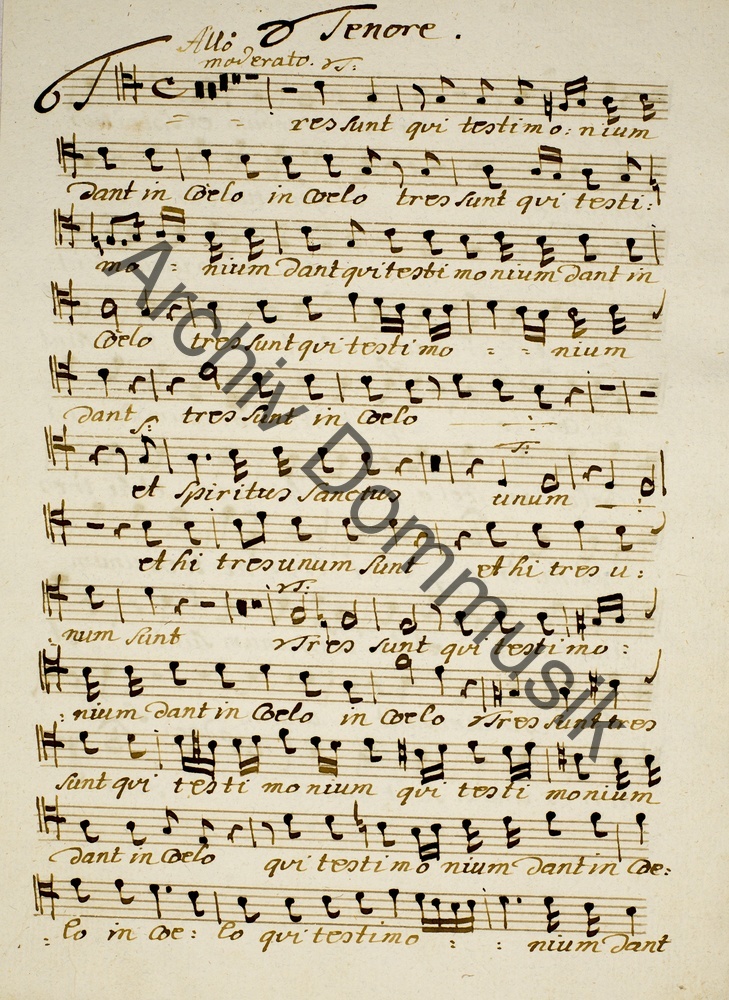 Tenore.
Allo
moderato.
Tres sunt qui testimo: nium
dant in Coelo in Coelo tres sunt qui testi:
mo : nium dant qui testi monium dant in
Coelo tres sunt qui testi mo : : nium
dant tres sunt in Coelo
et spiritus sanctus unum
et hi tres unum sunt et hi tres u:
: num sunt Tres sunt qui testi mo :
: nium dant in Coelo in Coelo Tres sunt tres
sunt qui testi monium qui testi monium
dant in Coelo qui testimo nium dant in Coe:
: lo in Coe: lo qui testimo : : nium dant
Archiv Dommusik